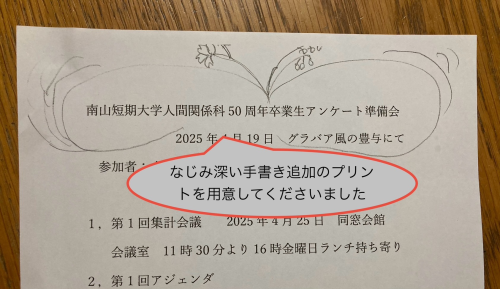 南山短期大学人間関係科50周年卒業生アンケート準備会
2025年4月19日 グラバア風の豊与にて
参加者：
なじみ深い手書き追加のプリン
トを用意してくださいました
1，第1回集計会議 2025年4月25日 同窓会館
会議室 11時30分より16時金曜日ランチ持ち寄り
2，第1回アジェンダ